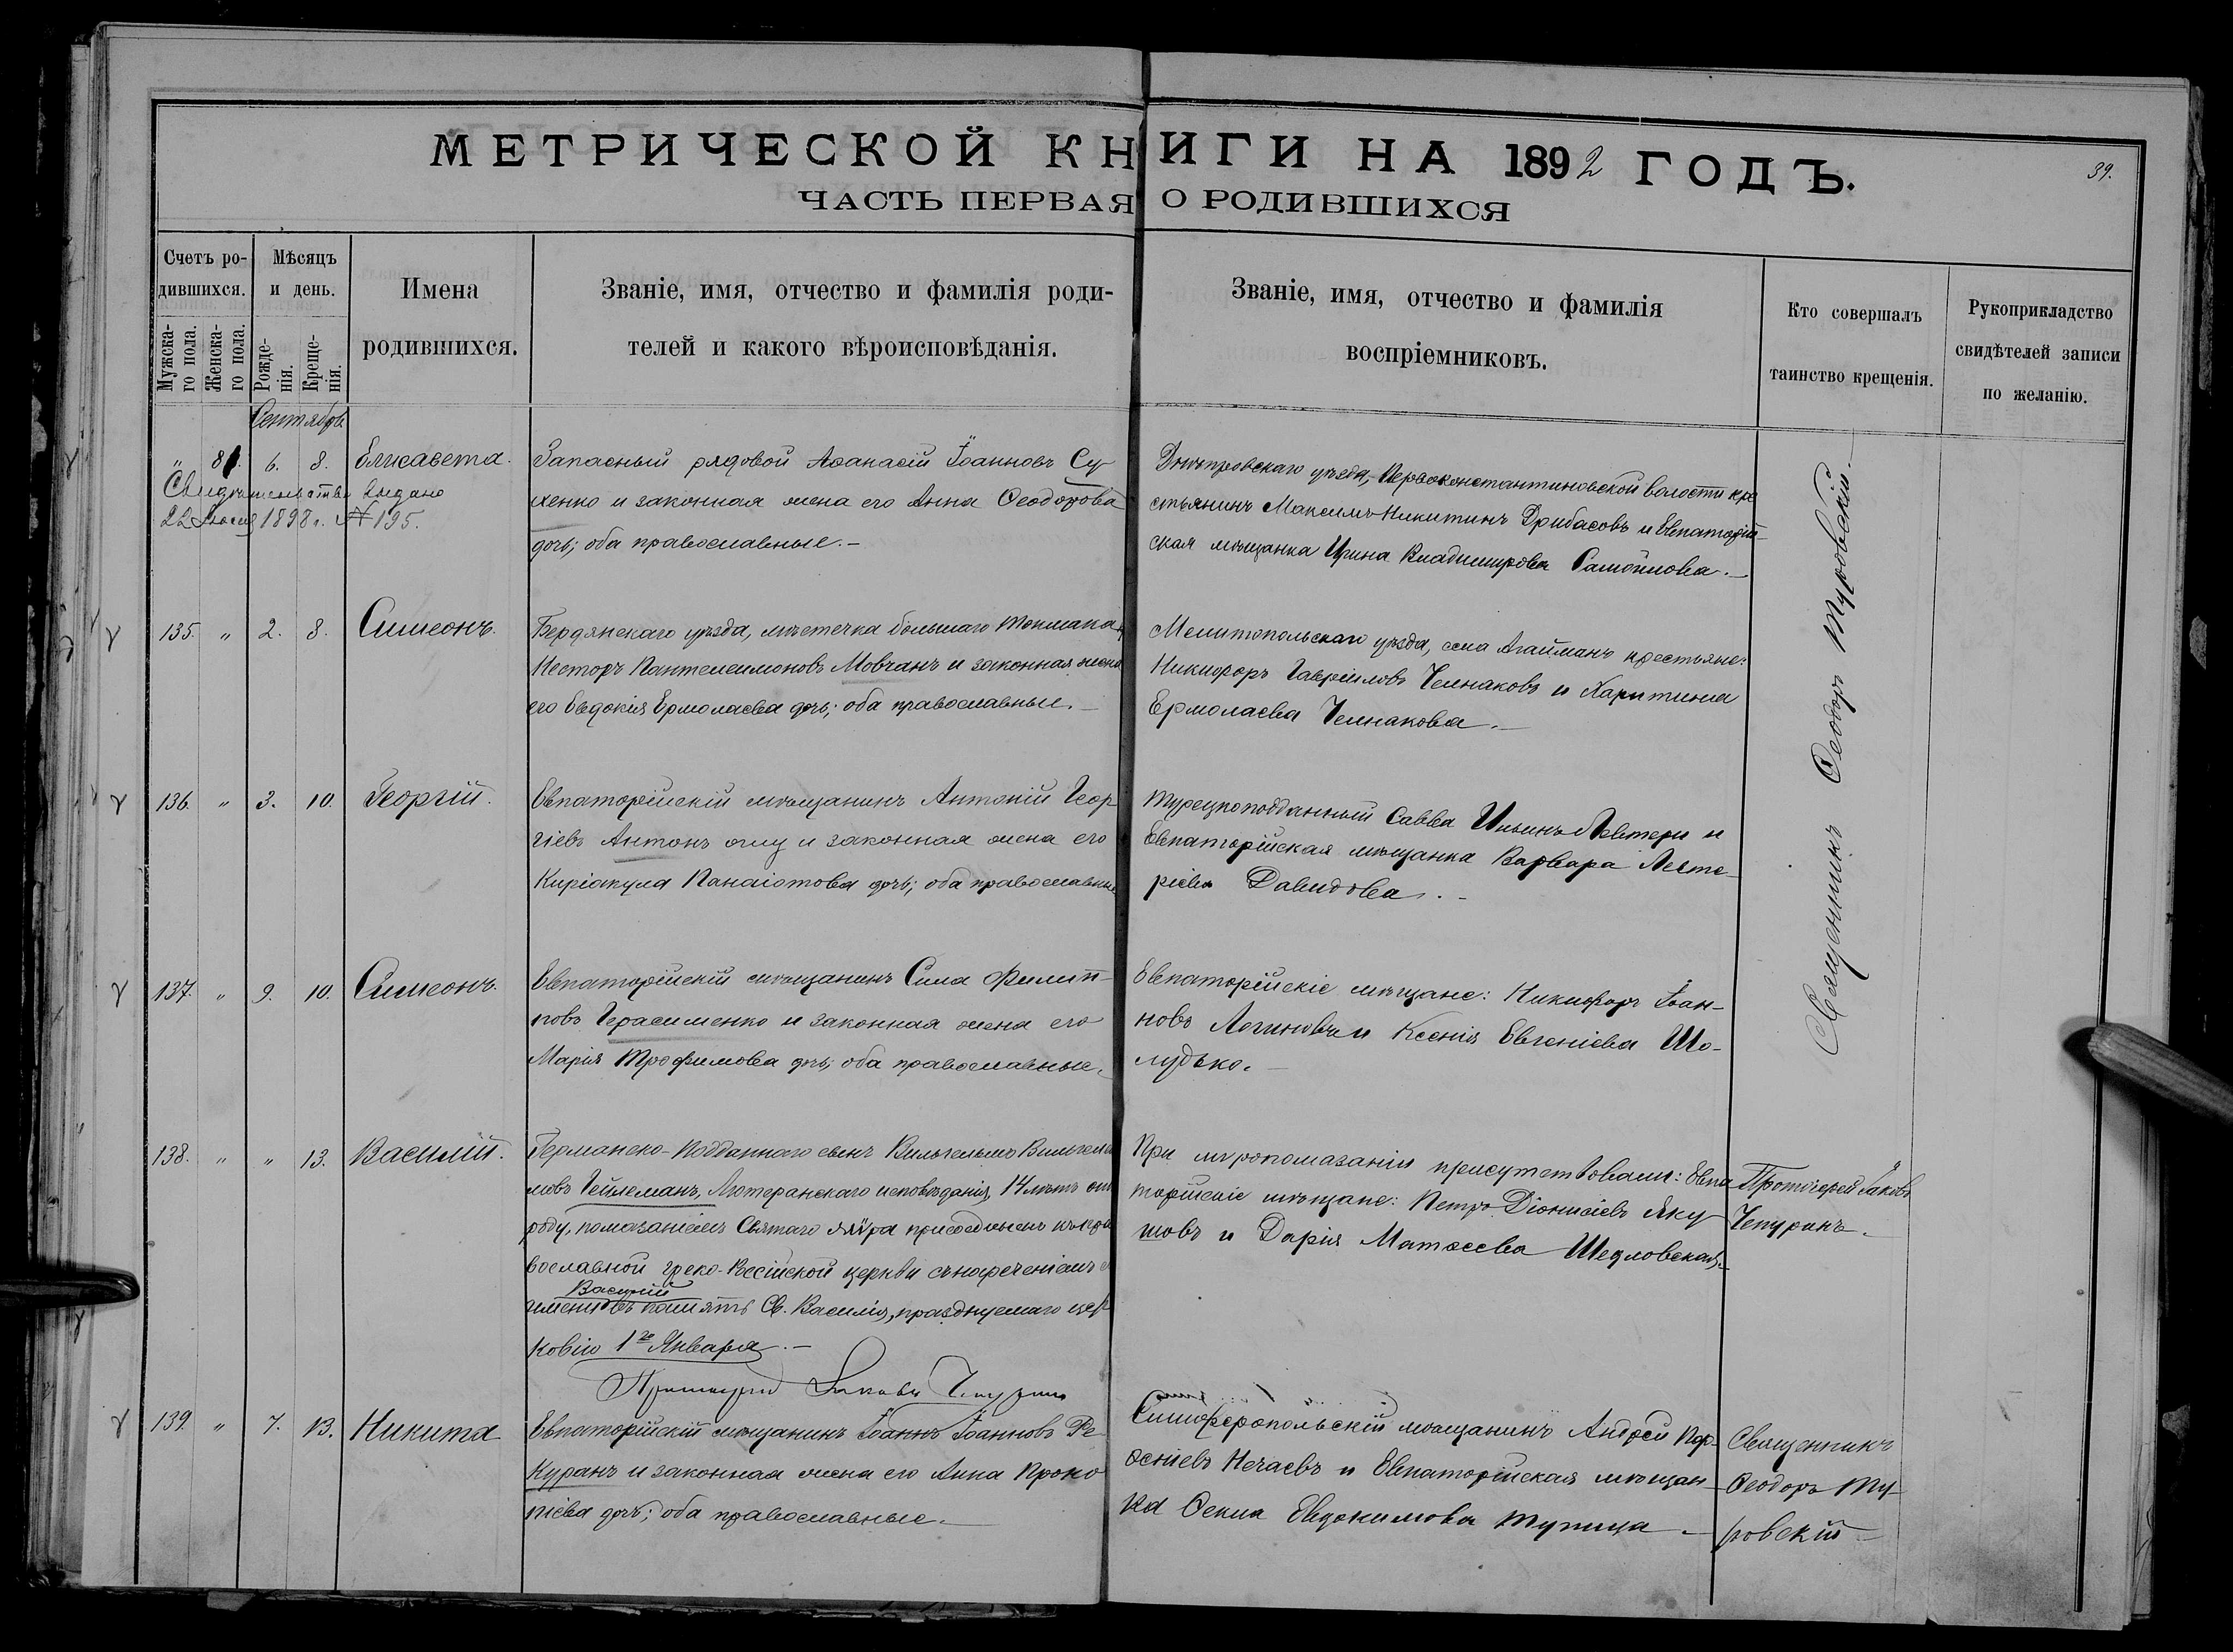 МЕТРИЧЕСКОЙ КНИГИ НА 1892 ГОДЪ.
39.
ЧАСТЬ ПЕРВАЯ О РОДИВШИХСЯ
Счетъ ро-
дившихся.
Мужска-
го пола.
Женска-
го пола.
Мѣсяцъ
и день.
Рожде-
нія.
Креще-
нія.
Имена
родившихся.
Званіе, имя, отчество и фамилія роди-
телей и какого вѣроисповѣданія.
Званіе, имя, отчество и фамилія
воспріемниковъ.
Кто совершалъ
таинство крещенія.
Рукоприкладство
свидѣтелей записи
по желанію.
Сентябрь
" 81. 6. 8. Елисавета.
Свидѣтельство выдано
22 1898 г. № 195.
Запасный рядовой Аѳанасій Іоанновъ Су
хенко и законная жена его Анна Ѳеодорова
дочь; оба православные.-
Днѣпровскаго уѣзда, Первоконстантиновской волости кре
стьянинъ Максимъ Никитинъ Дрибасовъ и Евпаторій-
ская мѣщанка Ирина Владимирова Самойлова.-
135. " 2. 8. Симеонъ.
Бердянскаго уѣзда, мѣстечка большаго Токмака
Несторъ Пантелеимоновъ Мовчанъ и законная жена
его Евдокія Ермолаева дочь; оба православные.-
Мелитопольскаго уѣзда, села Агайманъ крестьяне:
Никифоръ Гавріиловъ Челнаковъ и Харитина
Ермолаева Челнакова.-
136. " 3. 10. Георгій.
Евпаторійскій мѣщанинъ Антоній Геор
гіевъ Антонъ оглу и законная жена его
Киріакула Панаіотова дочь; оба православные
Турецкоподданный Савва Ильинъ Левтери и
Евпаторійская мѣщанка Варвара Лефте-
ріева Давидова.-
137. " 9. 10. Симеонъ.
Евпаторійскій мѣщанинъ Сила Филип-
повъ Герасименко и законная жена его
Марія Трофимова дочь; оба православные.
Евпаторійскіе мѣщане: Никифоръ Іоан-
новъ Логиновъ и Ксенія Евгеніева Шо-
лудько.-
Священникъ Ѳеодоръ Туровскій.-
138. " " 13. Василій.
Германско-подданнаго сынъ Вильгельмъ Вильгель
мовъ Гейлеманъ, Лютеранскаго исповѣданія, 14 лѣтъ отъ
роду, помазаніемъ Святаго мѵра присоединенъ къ пра
вославной греко-Россійской церкви съ нареченіемъ
Василій
имени въ память Св. Василія, празднуемаго цер
ковію 1го Января.-
Протоіерей Іаковъ Чепуринъ
При мѵропомазаніи присутствовали: Евпа
торійскіе мѣщане: Петръ Діонисіевъ Яку
шовъ и Дарія Матѳеева Шедловская.-
Протоіерей Іаковъ
Чепуринъ.
139. " 7. 13. Никита
Евпаторійскій мѣщанинъ Іоаннъ Іоанновъ Ре
куранъ и законная жена его Анна Проко
піева дочь; оба православные.-
Симферопольскій мѣщанинъ Андрей Пар-
ѳеніевъ Нечаевъ и Евпаторійская мѣщан
ка Ѳекла Евдокимова Тупица.-
Священникъ
Ѳеодоръ Ту-
ровскій-